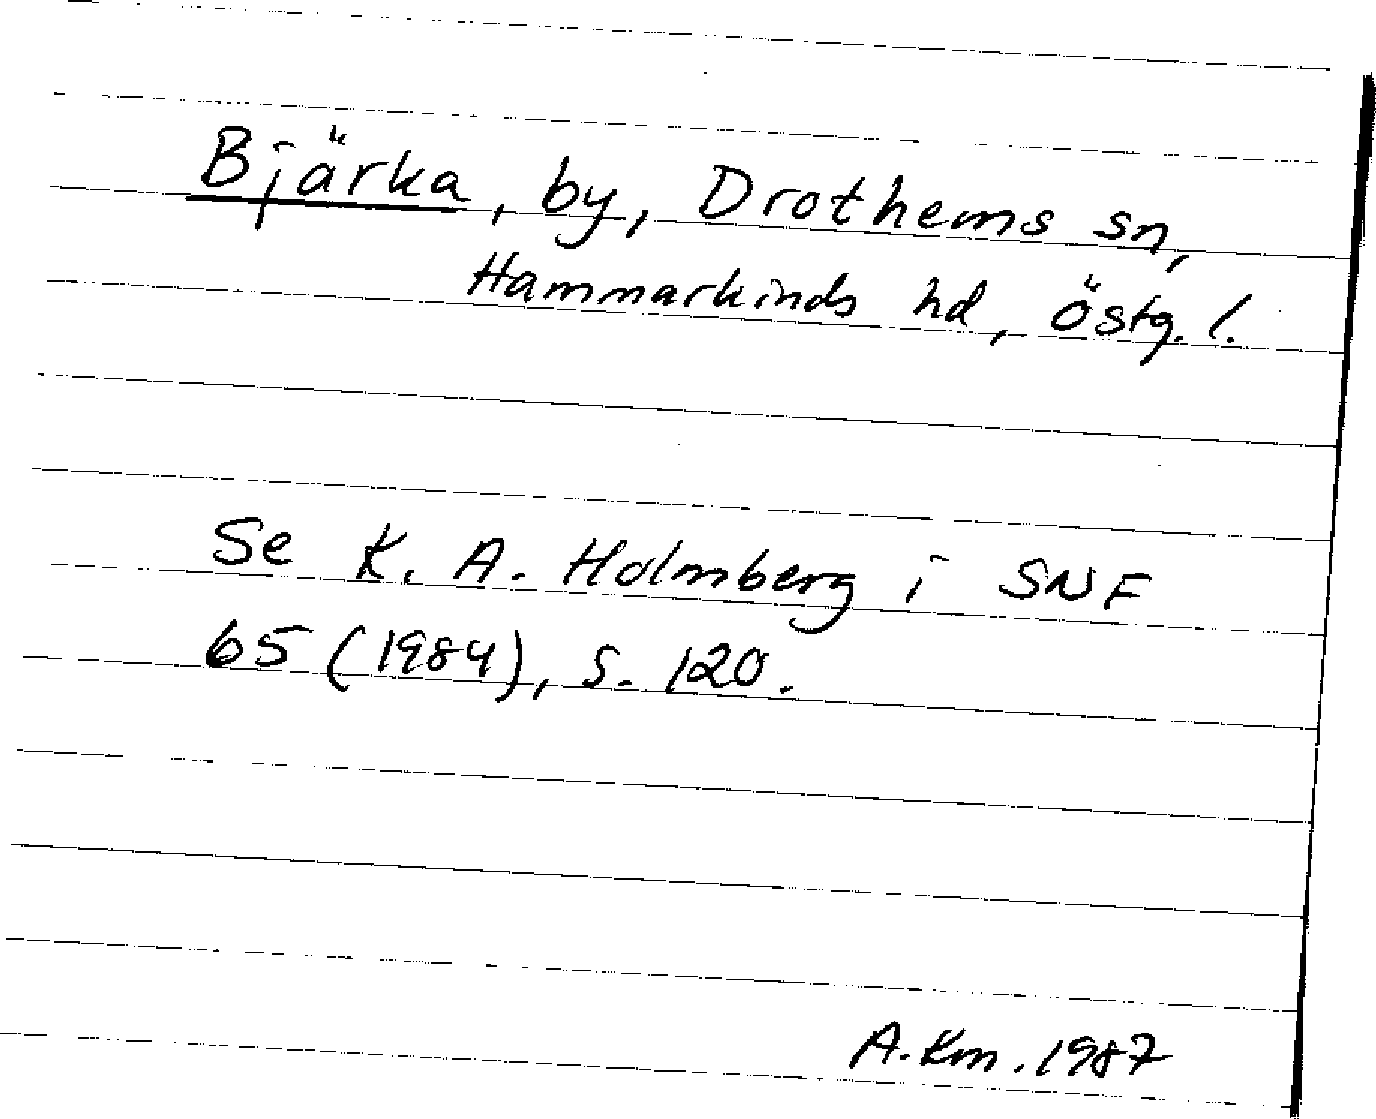 Bjärka, by, Drothems sn,
Hammarkinds hd, Östg. l.
Se K. A. Holmberg i SNF
65 (1984), s. 120.
A. Km. 1987